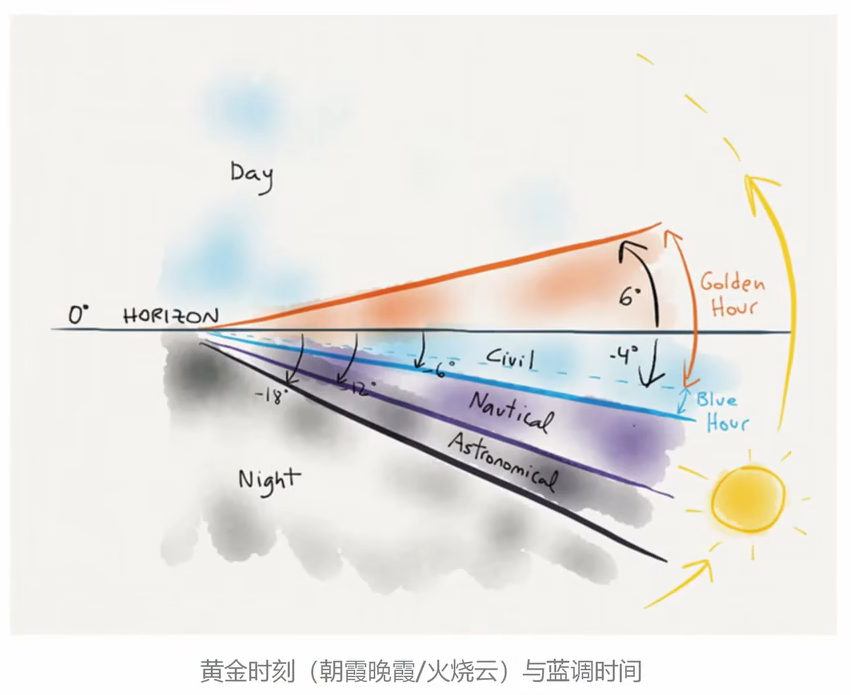 Day
6°
Golden
Hour
0° HORIZON
-4°
Civil
-6°
-12°
-18°
Blue
Hour
Nautical
Astronomical
Night
黄金时刻（朝霞晚霞/火烧云）与蓝调时间